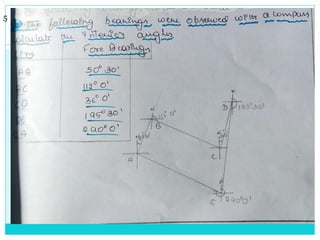 5
The following bearings were observed with a compass
calculate the interior angles
Line Fore Bearings
AB 50° 30'
BC 112° 0'
CD 36° 0'
DE 195° 30'
EA 290° 0'
D 195°30'
B
A
C
E 290°0'